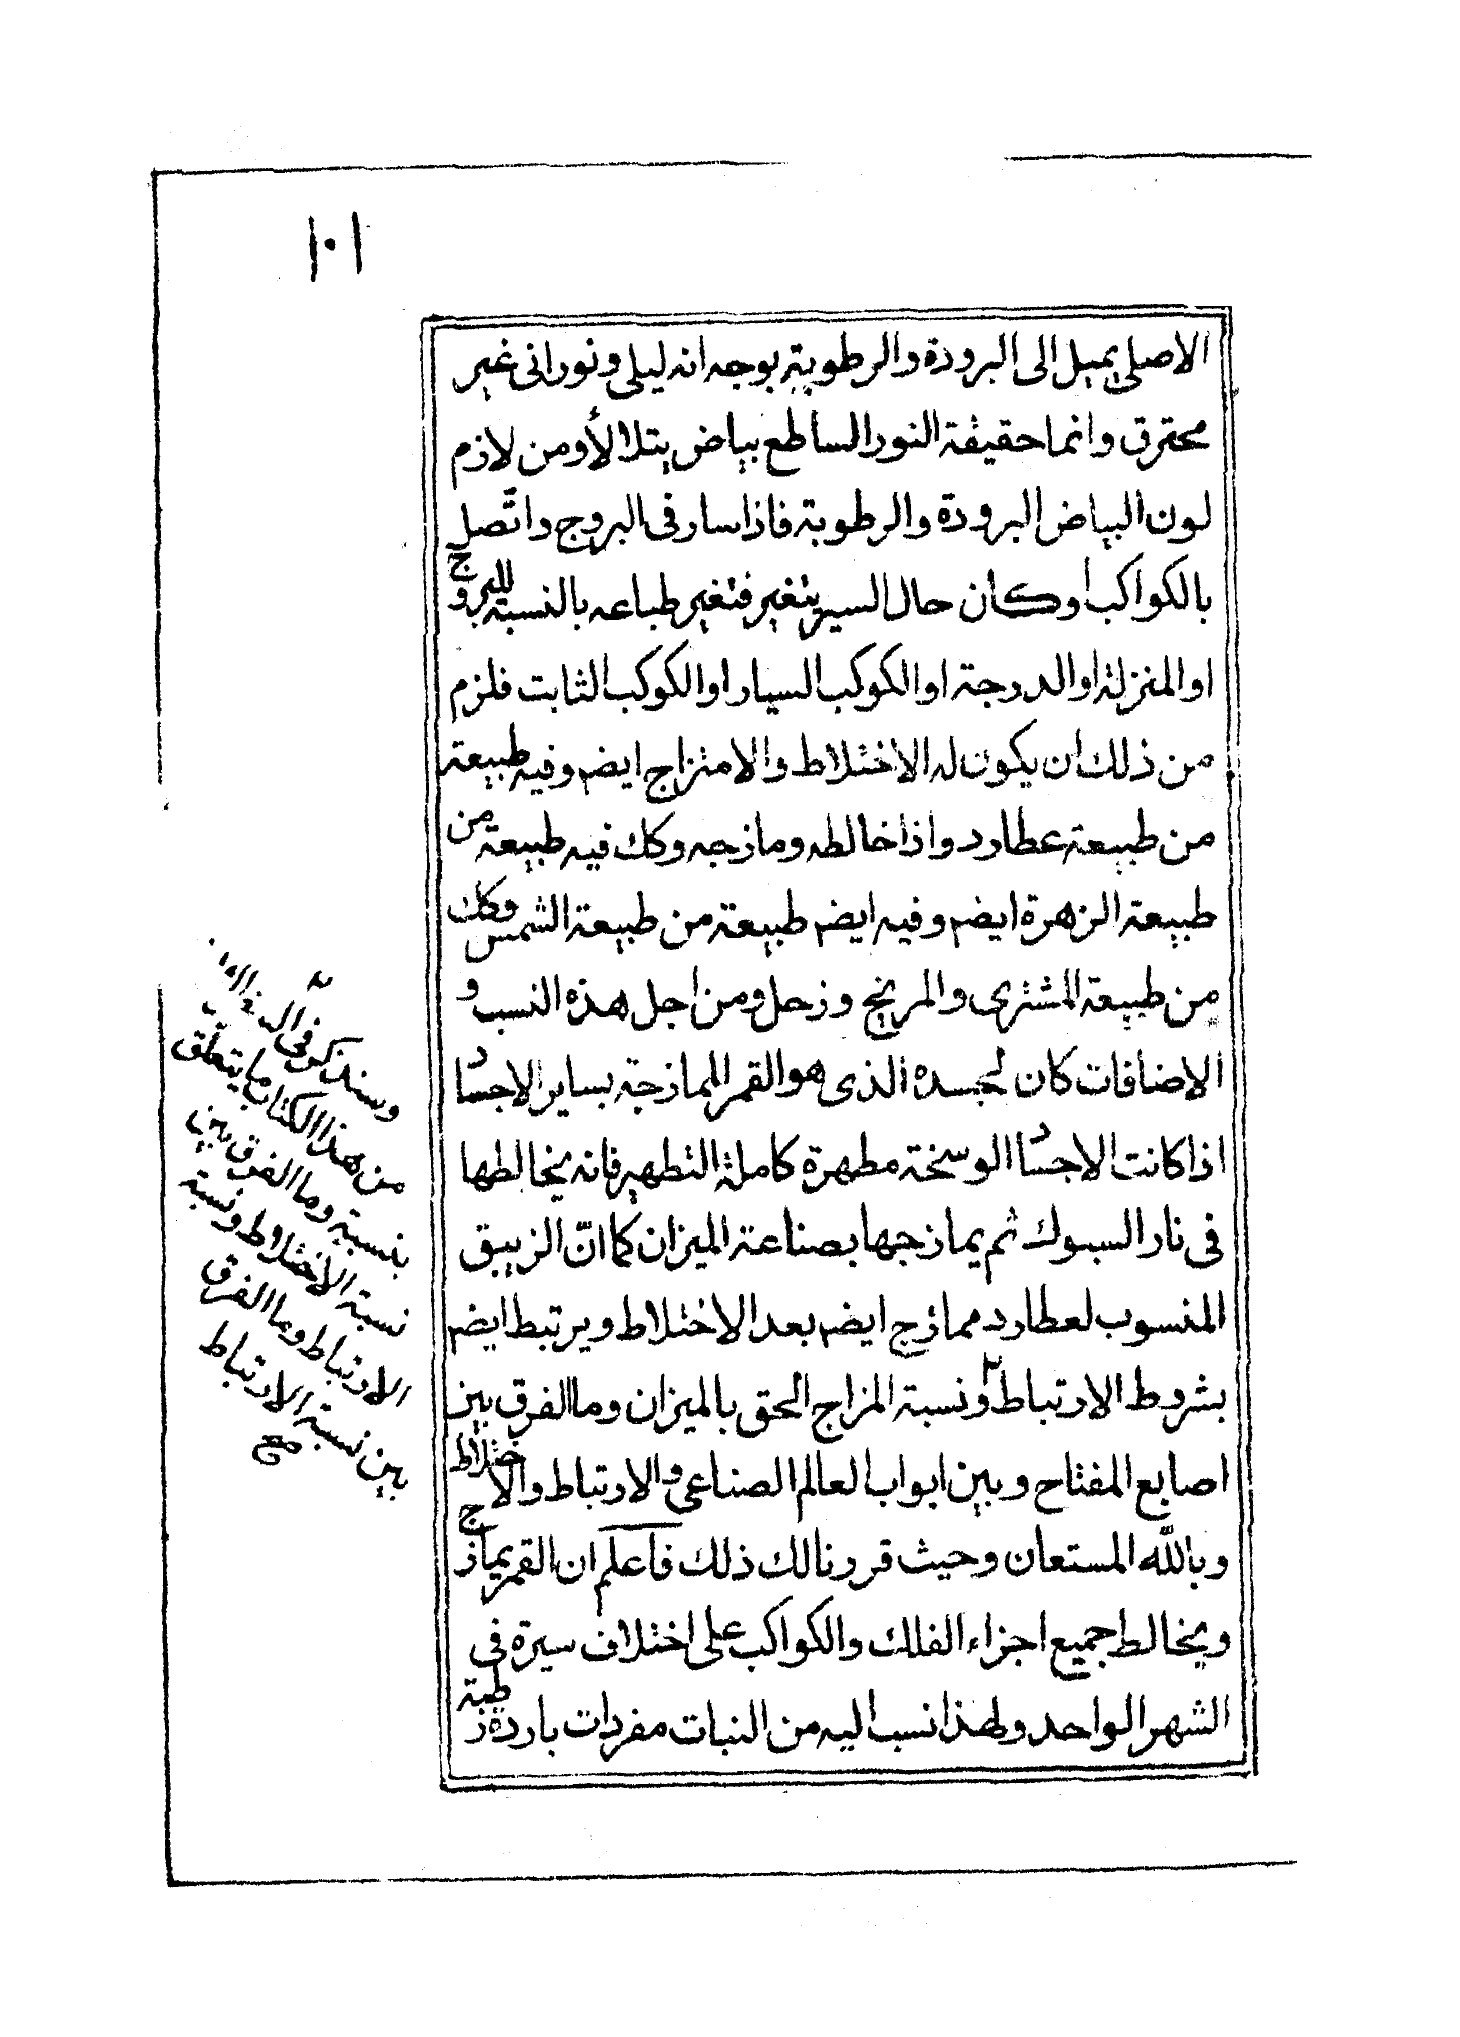 ١٠١
الاصلى يميل الى البرودة والرطوبة بوجه انه ليلى ونورانى غير
محترق وانما حقيقة النور الساطع بياض يتلالأ ومن لازم
لون البياض البرودة والرطوبة فاذا سار فى البروج واتّصل
بالكواكب وكان حال السير يتغير فتغير طباعه بالنسبة للبروج
او المنزلة او الدرجة او الكوكب السيار او الكوكب الثابت فلزم
من ذلك ان يكون له الاختلاط والامتزاج ايضم وفيه طبيعة
من طبيعة عطارد واذا خالطه ومازجه وكك فيه طبيعة من
طبيعة الزهرة ايضم وفيه ايضم طبيعة من طبيعة الشمس وكك
من طبيعة المشترى والمريخ وزحل ومن اجل هذه النسب و
الاضافات كان لجسده الذى هو القمر الممازجة بساير الاجساد
اذا كانت الاجساد الوسخة مطهرة كاملة التطهير فانه يخالطها
فى نار السبوك ثم يمازجها بصناعة الميزان كما انّ الزيبق
المنسوب لعطارد ممازج ايضم بعد الاختلاط ويرتبط ايضم
بشروط الارتباط ونسبة المزاج الحق بالميزان وما الفرق بين
اصابع المفتاح وبين ابواب العالم الصناعى والارتباط والاختلاط
وبالله المستعان وحيث قررنا لك ذلك فاعلم ان القمر يمازج
ويخالط جميع اجزاء الفلك والكواكب على اختلاف سيرة فى
الشهر الواحد ولهذا نسب اليه من النبات مفردات باردة رطبة
وسنذكر فى
من هذا الكتاب ما يتعلّق
بنسبة وما الفرق بين
نسبة الاختلاط ونسبة
الارتباط وما الفرق
بين نسبة الارتباط
صح